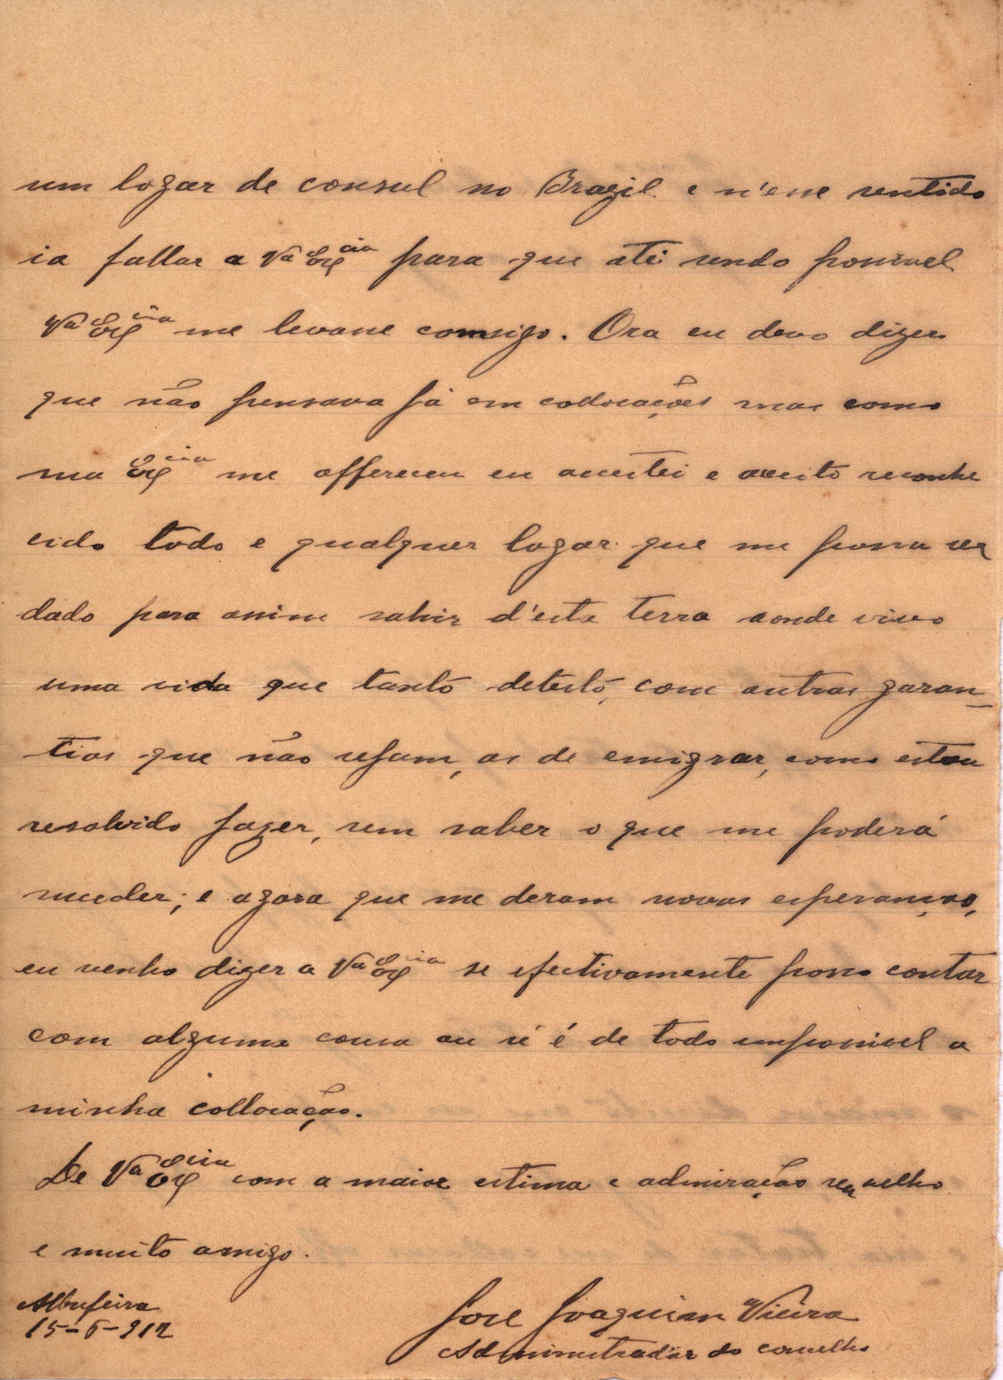 um logar de consul no Brazil e n'esse sentido
ia fallar a Vª Exᶜⁱᵃ para que até sendo possivel
Vª Exᶜⁱᵃ me levasse comsigo. Ora eu devo dizer
que não pensava já em collocações mas como
sua Exᶜⁱᵃ me offereceu eu acceitei e acceito reconhe
cido todo e qualquer logar que me possa ser
dado para assim sahir d'esta terra aonde vivo
uma vida que tanto detesto, com outras garan_
tias que não sejam, as de emigrar, como estou
resolvido fazer, sem saber o que me poderá
succeder; e agora que me deram novas esperanças,
eu venho dizer a Vª Exᶜⁱᵃ se efectivamente posso contar
com alguma cousa ou si é de todo impossivel a
minha collocação.
De Vª Exᶜⁱᵃ com a maior estima e admiração seu velho
e muito amigo.
Albufeira
15-6-912
José Joaquim Vieira
Administrador do concelho